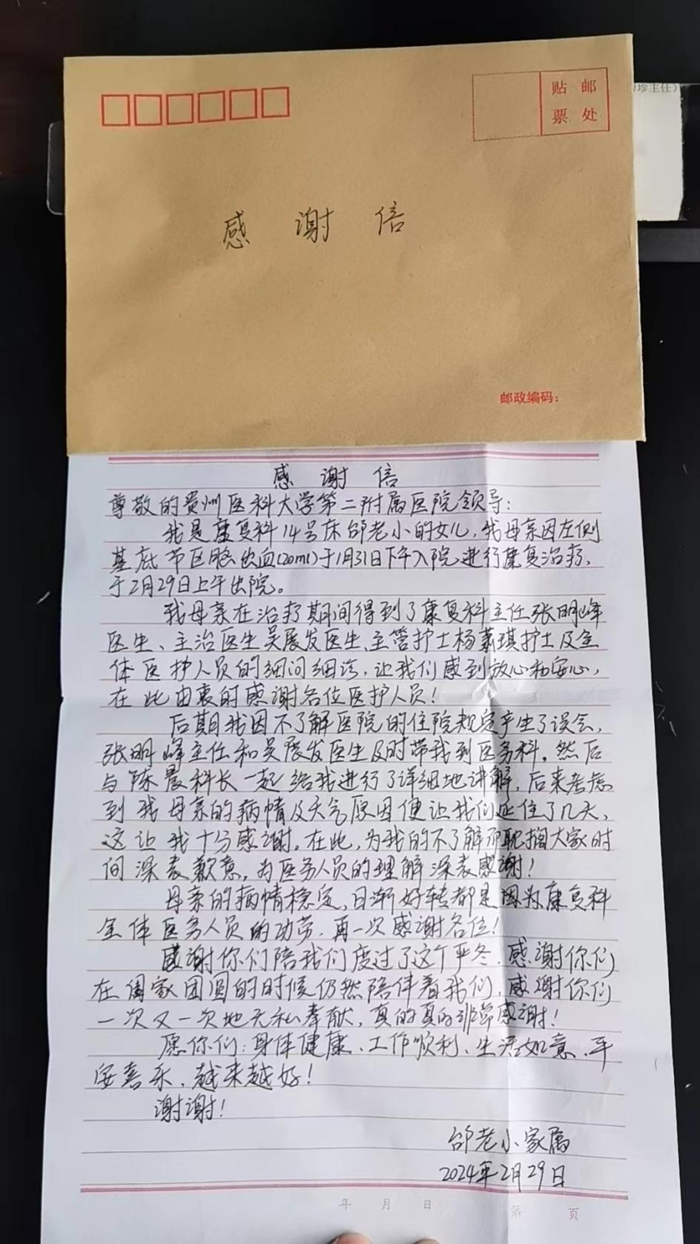 珍主任)
贴 邮
票 处
感谢信
邮政编码:
感谢信
尊敬的贵州医科大学第二附属医院领导:
我是康复科14号床邰老小的女儿,我母亲因左侧
基底节区脑出血(20ml)于1月31日下午入院进行康复治疗,
于2月29日上午出院。
我母亲在治疗期间得到了康复科主任张明峰
医生、主治医生吴展发医生、主管护士杨嘉琪护士及全
体医护人员的细问细访,让我们感到放心和安心,
在此由衷的感谢各位医护人员!
后期我因不了解医院的住院规定产生了误会,
张明峰主任和吴展发医生及时带我到医务科,然后
与陈晨科长一起给我进行了详细地讲解,后来考虑
到我母亲的病情及天气原因便让我们延住了几天,
这让我十分感谢。在此,为我的不了解而耽搁大家时
间深表歉意,为医务人员的理解深表感谢!
母亲的病情稳定,日渐好转都是因为康复科
全体医务人员的功劳,再一次感谢各位!
感谢你们陪我们度过了这个严冬,感谢你们
在阖家团圆的时候仍然陪伴着我们,感谢你们
一次又一次地无私奉献,真的真的非常感谢!
愿你们:身体健康、工作顺利、生活如意、平
安喜乐,越来越好!
谢谢!
邰老小家属
2024年2月29日
年 月 日 第 页